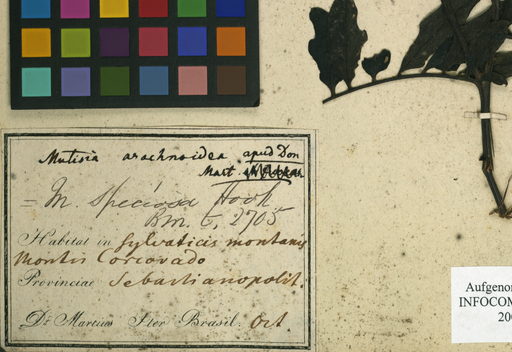 Mutisia arachnoidea apud Don
Mart.
= M. Speciosa Hook
Bm. t. 2705
Habitat in sylvaticis montanis
Montis Corcovado
Provinciae Sebastianopolit.
Dr. Martius Iter Brasil. Oct.
Aufgenom
INFOCOM
200